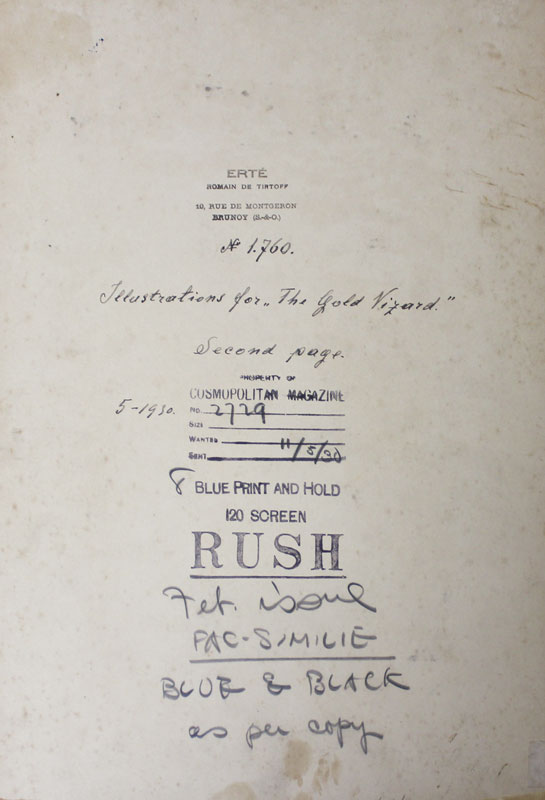 ERTÉ
ROMAIN DE TIRTOFF
19, RUE DE MONTGERON
BRUNOY (S.-&-O.)
№ 1.760.
Illustrations for „The Gold Vizard."
Second page.
PROPERTY OF
COSMOPOLITAN MAGAZINE
5-1930.
No. 2729
SIZE
WANTED
SENT 11/5/30
8 BLUE PRINT AND HOLD
120 SCREEN
RUSH
Feb. issue
FAC-SIMILIE
BLUE & BLACK
as per copy